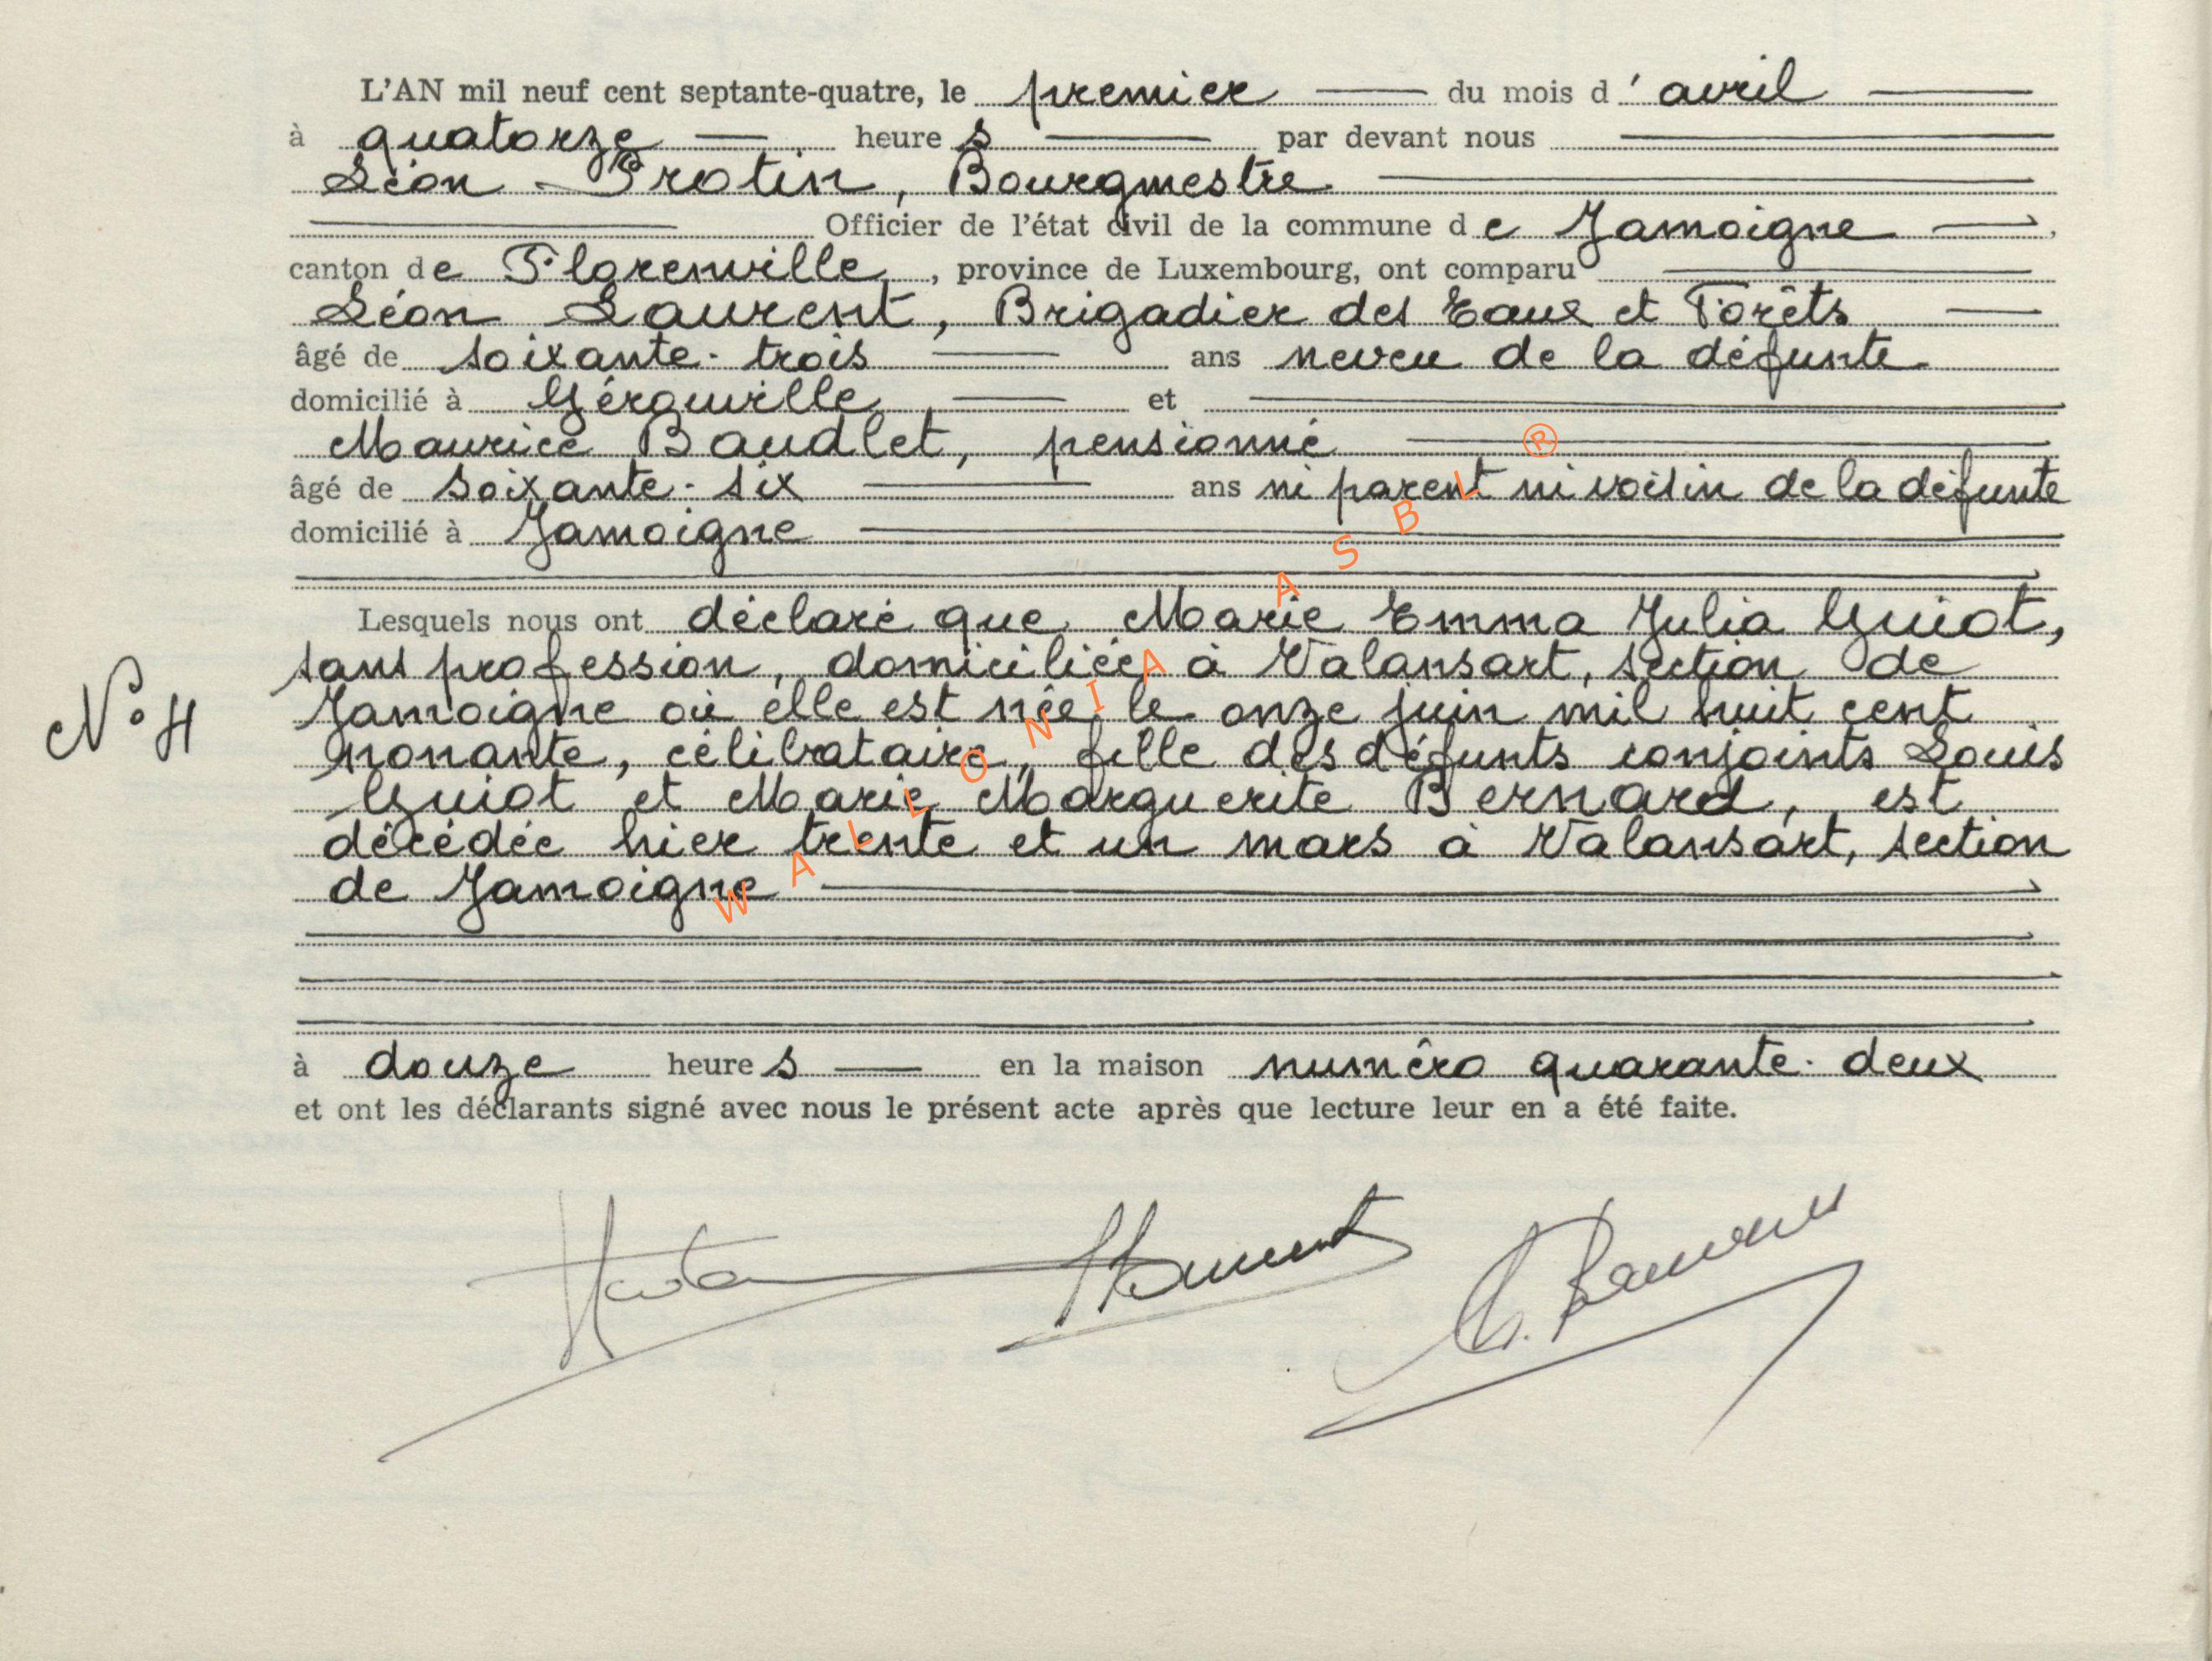 L'AN mil neuf cent septante-quatre, le premier du mois d'avril
à quatorze heures par devant nous
Léon Protin, Bourgmestre
Officier de l'état civil de la commune de Jamoigne
canton de Florenville, province de Luxembourg, ont comparu
Léon Laurent, Brigadier des Eaux et Forêts
âgé de soixante-trois ans neveu de la défunte
domicilié à Gérouville et
Maurice Baudlet, pensionné
âgé de soixante-six ans ni parent ni voisin de la défunte
domicilié à Jamoigne
Lesquels nous ont déclaré que Marie Emma Julia Guiot,
sans profession, domiciliée à Valansart, section de
Jamoigne où elle est née le onze juin mil huit cent
nonante, célibataire, fille des défunts conjoints Louis
Guiot et Marie Marguerite Bernard, est
décédée hier trente et un mars à Valansart, section
de Jamoigne
N° 4
à douze heures en la maison numéro quarante-deux
et ont les déclarants signé avec nous le présent acte après que lecture leur en a été faite.
WALLONIA ASBL ®